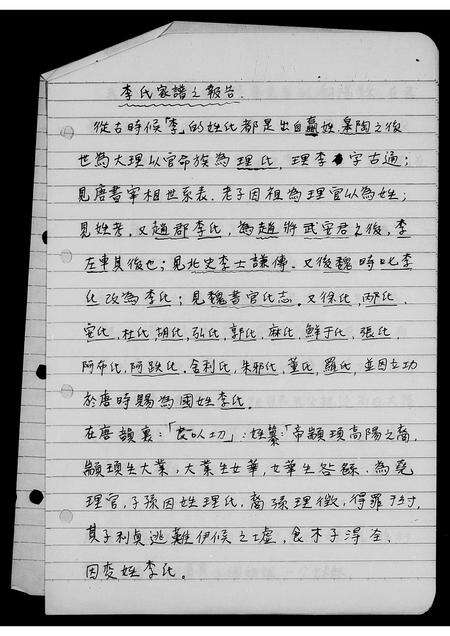 李氏家譜之報告
從古時候「李」的姓氏都是出自嬴姓皋陶之後
世為大理以官命族為理氏，理李字古通；
見唐書宰相世系表，老子因祖為理官以為姓；
見姓考，又趙郡李氏，為趙將武安君之後，李
左車其後也；見北史李士謙傳。又後魏時叱李
氏改為李氏；見魏書官氏志。又徐氏，邴氏，
安氏，杜氏，胡氏，弘氏，郭氏，麻氏，鮮于氏，張氏，
阿布氏，阿跌氏，舍利氏，朱邪氏，董氏，羅氏，並因立功
於唐時賜為國姓李氏。
在唐韻裏：「良以切」；姓纂：「帝顓頊高陽之裔，
顓頊生大業，大業生女華，女華生咎繇，為堯
理官，子孫因姓理氏，裔孫理徵，得罪于紂，
其子利貞逃難伊候之墟，食木子得全，
因变姓李氏。